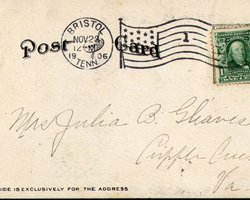 BRISTOL
NOV 22
12 M
1906
TENN.
1
Post Card
Mrs Julia B. Gleaves
Cripple Cree
Va
IDE IS EXCLUSIVELY FOR THE ADDRESS